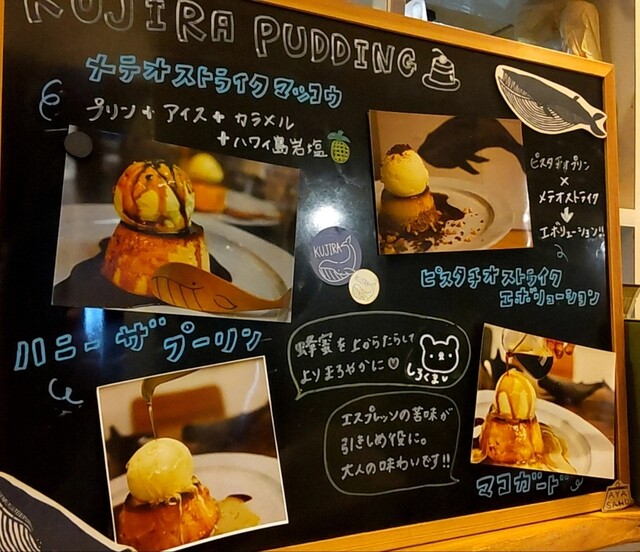 KUJIRA PUDDING
メテオストライクマッコウ
プリン+アイス+カラメル
+ハワイ島岩塩
ピスタチオプリン
×
メテオストライク
↓
エボリューション!!
KUJIRA
ピスタチオストライク
エボリューション
ハニーザプーリン
蜂蜜を上からたらして
よりまろやかに♡
しろくま
エスプレッソの苦味が
引きしめ役に。
大人の味わいです!!
マコガード